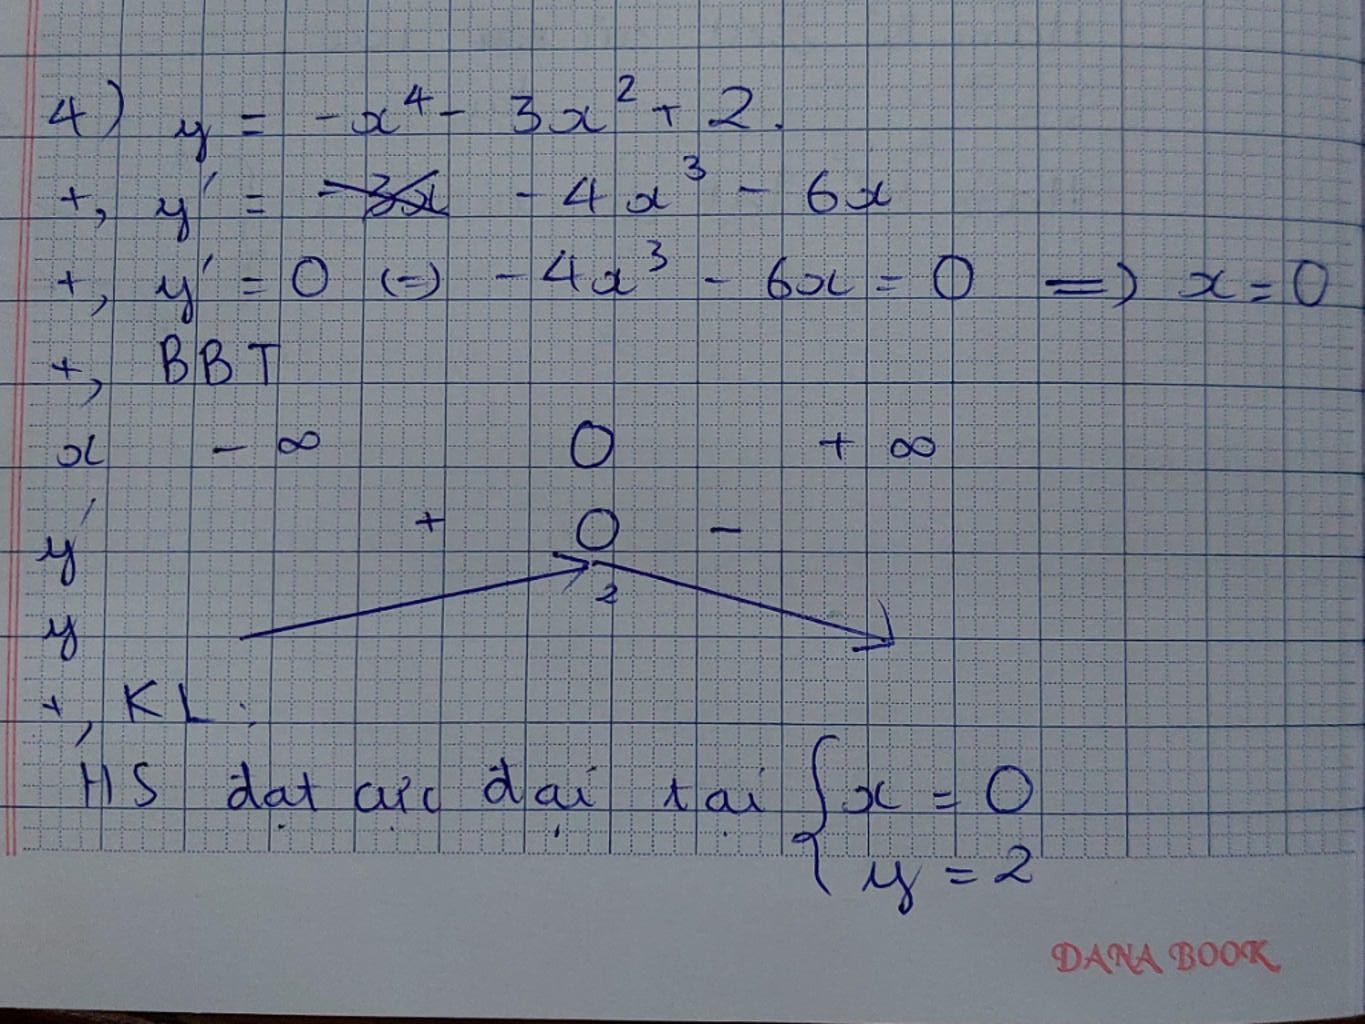 4) y = -x⁴ - 3x² + 2.
+, y' = -3x - 4x³ - 6x
+, y' = 0 (=) - 4x³ - 6x = 0 => x = 0
+, BBT
x - ∞ 0 + ∞
y' + 0 -
2
y
+, KL :
HS đạt cực đại tại { x = 0
y = 2
DANA BOOK